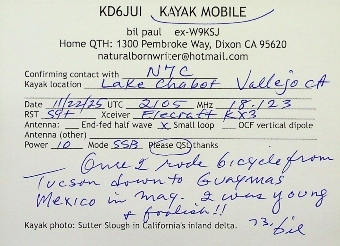 KD6JUI KAYAK MOBILE
bil paul ex-W9KSJ
Home QTH: 1300 Pembroke Way, Dixon CA 95620
naturalbornwriter@hotmail.com
Confirming contact with N7C
Kayak location Lake Chabot Vallejo CA
Date 11/22/25 UTC 2105 MHz 18.123
RST 59+ Xceiver Elecraft KX3
Antenna: __ End-fed half wave x Small loop __ OCF vertical dipole
Antenna (other)
Power 10 Mode SSB Please QSL thanks
Once I rode bicycle from
Tucson down to Guaymas
Mexico in May. I was young
& foolish!!
73, bil
Kayak photo: Sutter Slough in California's inland delta.